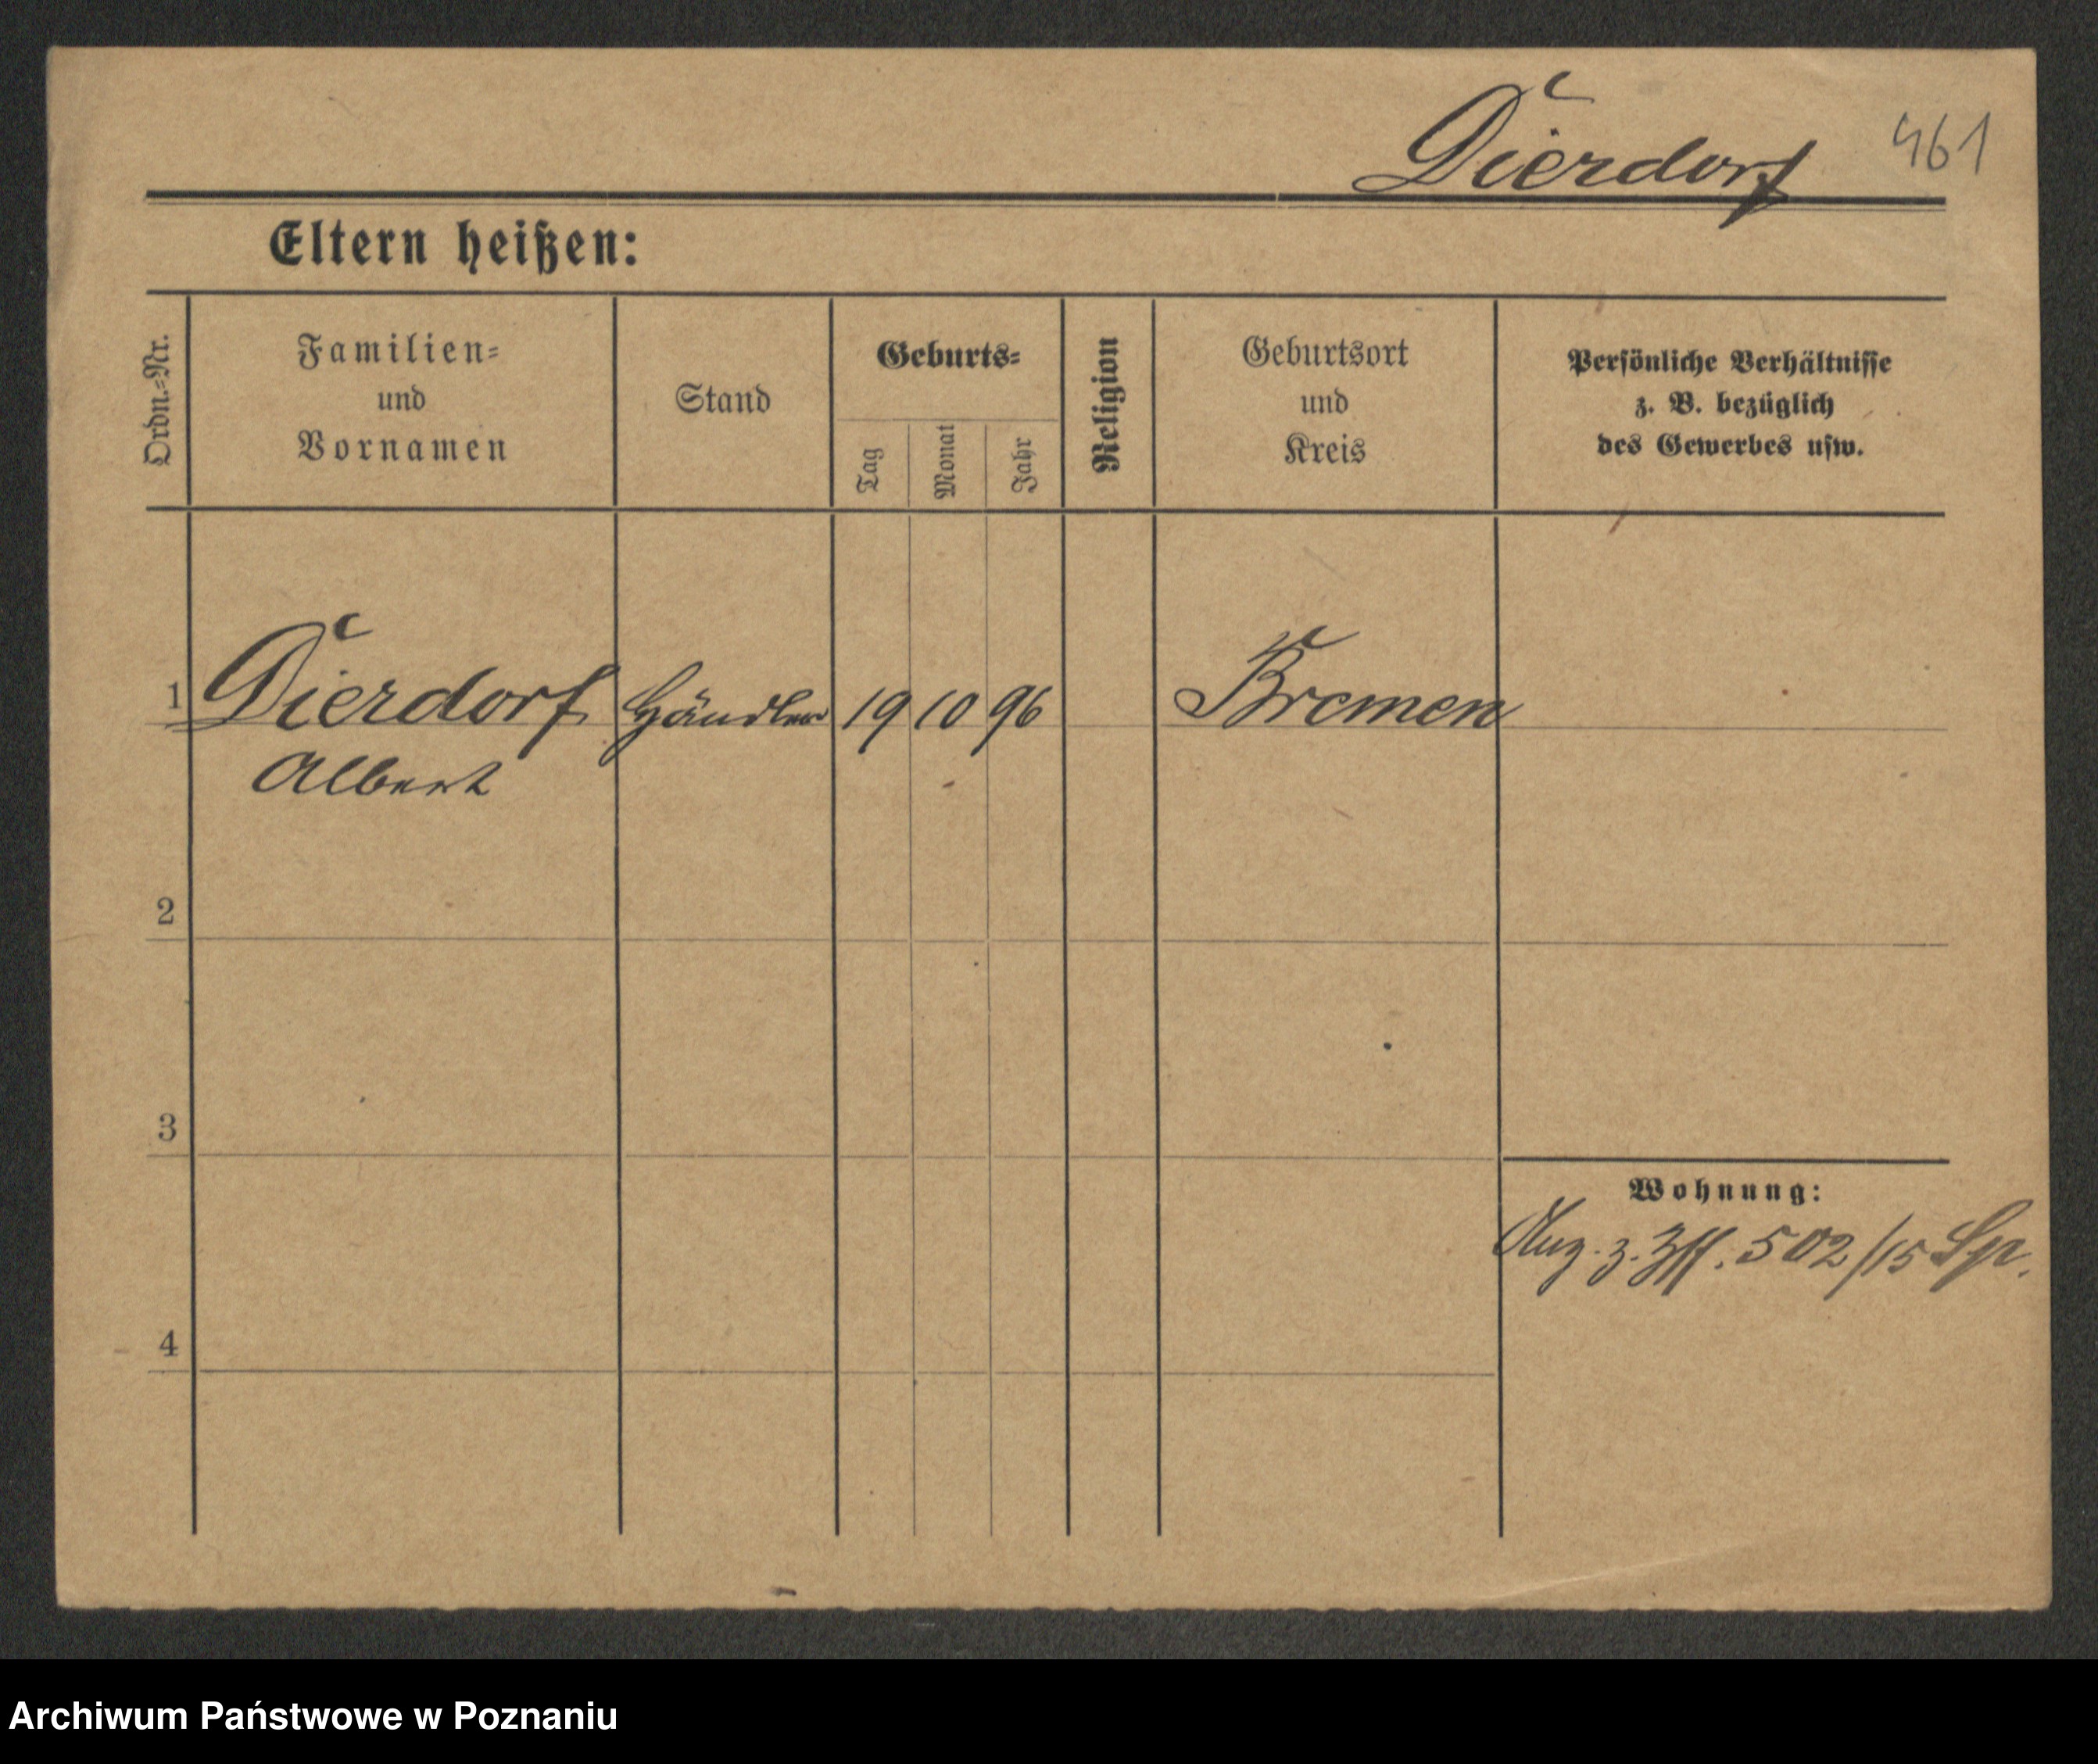 Dierdorf 461
Eltern heißen:
Ordn.-Nr.
Familien-
und
Vornamen
Stand
Geburts-
Tag
Monat
Jahr
Religion
Geburtsort
und
Kreis
Persönliche Verhältnisse
z. B. bezüglich
des Gewerbes usw.
1 Dierdorf Händler 19 10 96 Bremen
Albert
2
3
Wohnung:
z. 502/15
4
Archiwum Państwowe w Poznaniu